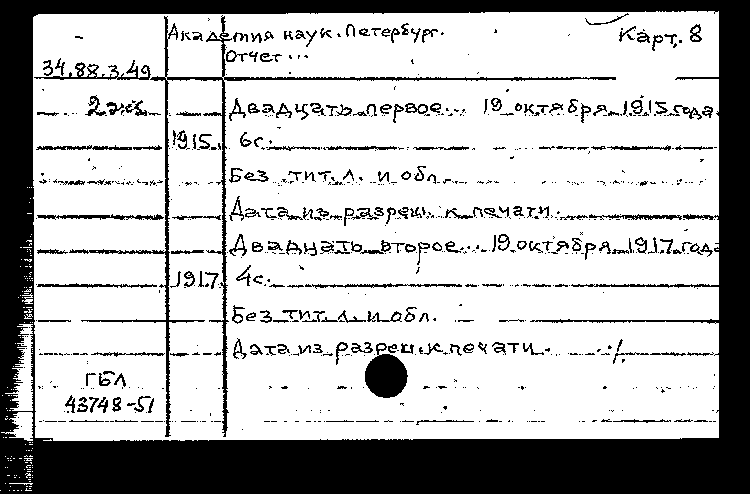 Академия наук. Петербург. Карт. 8
Отчет...
34.88.3.49
2 экз. Двадцать первое... 19 октября 1915 года
1915. 6с.
Без тит. л. и обл.
Дата из разреш. к печати.
Двадцать второе... 19 октября 1917 года
1917. 4с.
Без тит. л. и обл.
Дата из разреш. к печати. ./.
ГБЛ
43748-51